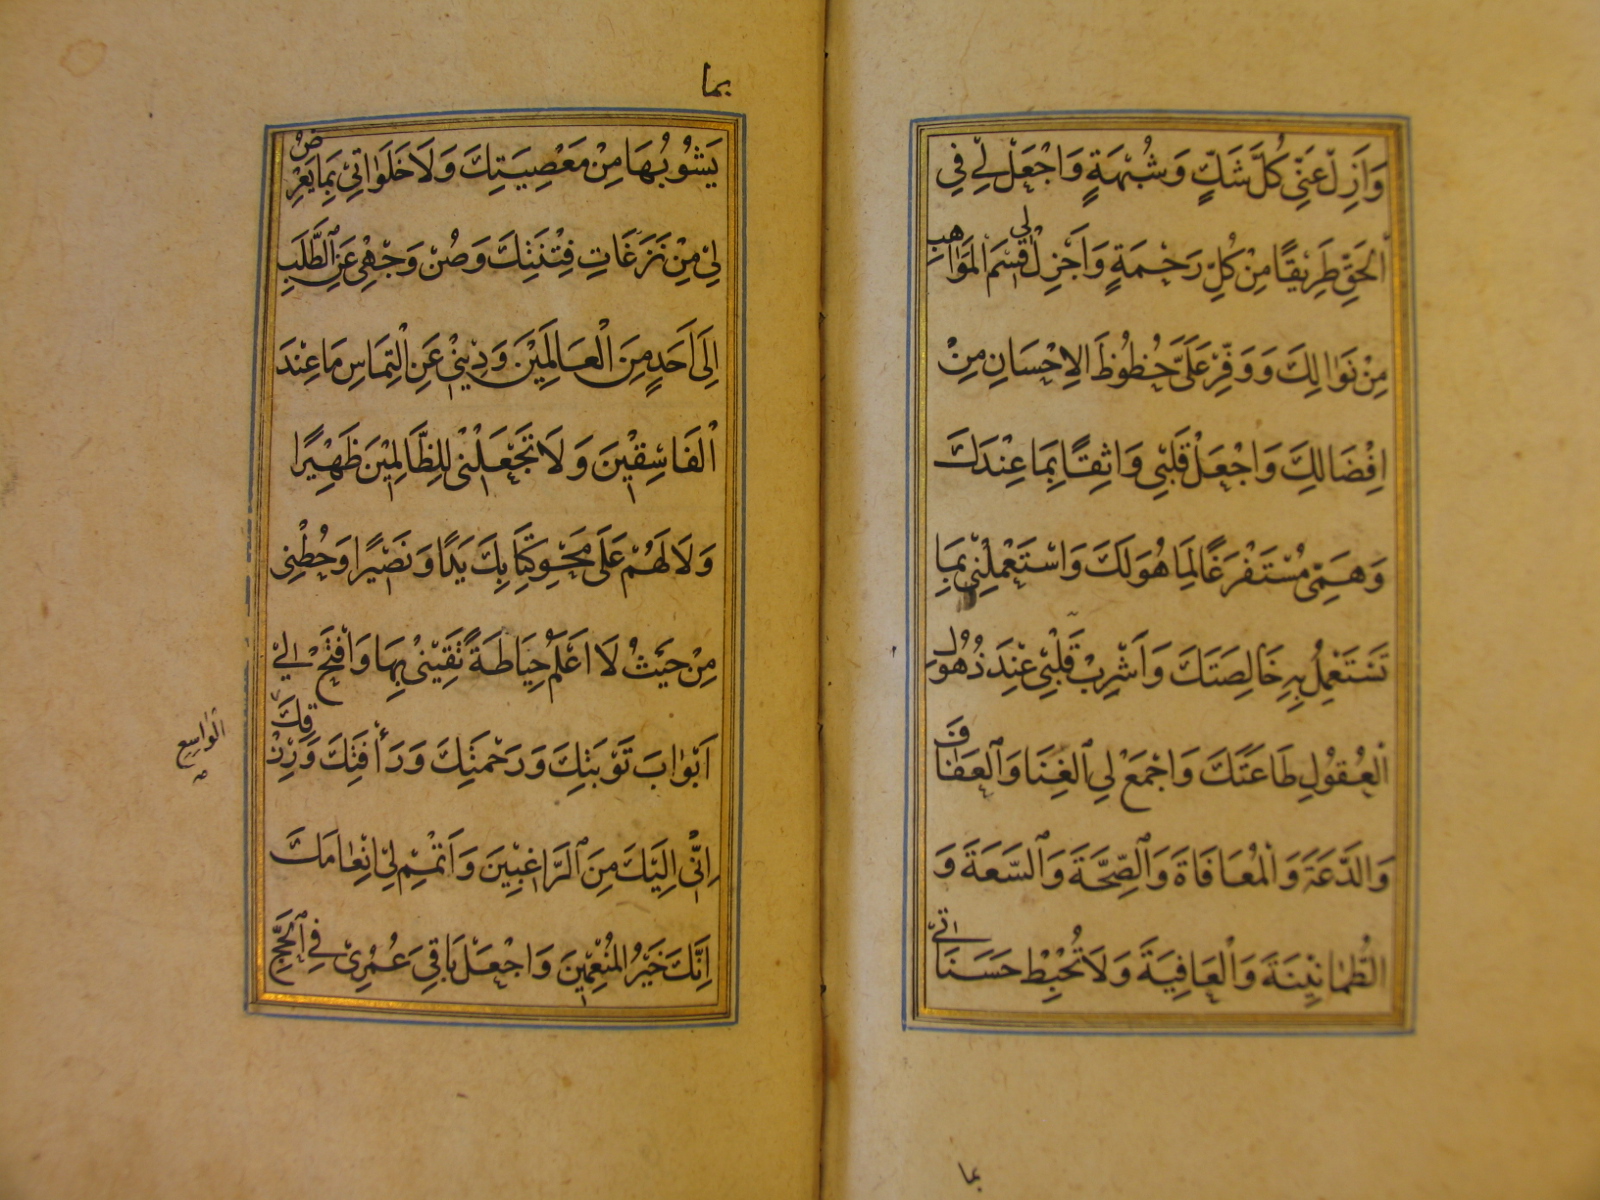 وَاَزِلْ عَنِّى كُلَّ شَكٍّ وَشُبْهَةٍ وَاجْعَلْ لِي فِي
الْحَقِّ طَرِيْقًا مِنْ كُلِّ رَحْمَةٍ وَاَجْزِلْ لِي قِسَمَ الْمَوَاهِبِ
مِنْ نَوَالِكَ وَوَفِّرْ عَلَيَّ حُظُوظَ الاِحْسَانِ مِنْ
اِفْضَالِكَ وَاجْعَلْ قَلْبِى وَاثِقًا بِمَا عِنْدَكَ
وَهَمِّى مُسْتَفْرَغًا لِمَا هُوَ لَكَ وَاسْتَعْمِلْنِى بِمَا
تَسْتَعْمِلُ بِهِ خَالِصَتَكَ وَاَشْرِبْ قَلْبِى عِنْدَ ذُهُولِ
الْعُقُولِ طَاعَتَكَ وَاجْمَعْ لِي الْغِنَا وَالْعَفَافَ
وَالدَّعَةَ وَالْمُعَافَاةَ وَالصِّحَّةَ وَالسَّعَةَ وَ
الطُّمَانِيْنَةَ وَالْعَافِيَةَ وَلَا تُحْبِطْ حَسَنَاتِى
بما
بما
يَشُوْبُهَا مِنْ مَعْصِيَتِكَ وَلَا خَلَوَاتِى بِمَا يَعْرِضُ
لِيْ مِنْ نَزَغَاتِ فِتْنَتِكَ وَصُنْ وَجْهِى عَنِ الطَّلَبِ
اِلَى اَحَدٍ مِنَ الْعَالَمِيْنَ وَدِيْنِى عَنِ الْتِمَاسِ مَا عِنْدَ
الْفَاسِقِيْنَ وَلَا تَجْعَلْنِى لِلظَّالِمِيْنَ ظَهِيْرًا
وَلَا لَهُمْ عَلَى مَحْوِ كِتَابِكَ يَدًا وَنَصِيْرًا وَحُطْنِى
مِنْ حَيْثُ لَا اَعْلَمُ حِيَاطَةً تَقِيْنِى بِهَا وَافْتَحْ لِيْ
اَبْوَابَ تَوْبَتِكَ وَرَحْمَتِكَ وَرَأْفَتِكَ وَرِزْقِكَ
الْوَاسِعِ
اِنِّى اِلَيْكَ مِنَ الرَّاغِبِيْنَ وَاَتْمِمْ لِيْ اِنْعَامَكَ
اِنَّكَ خَيْرُ الْمُنْعِمِيْنَ وَاجْعَلْ بَاقِيَ عُمْرِىْ فِي الْحَجِّ